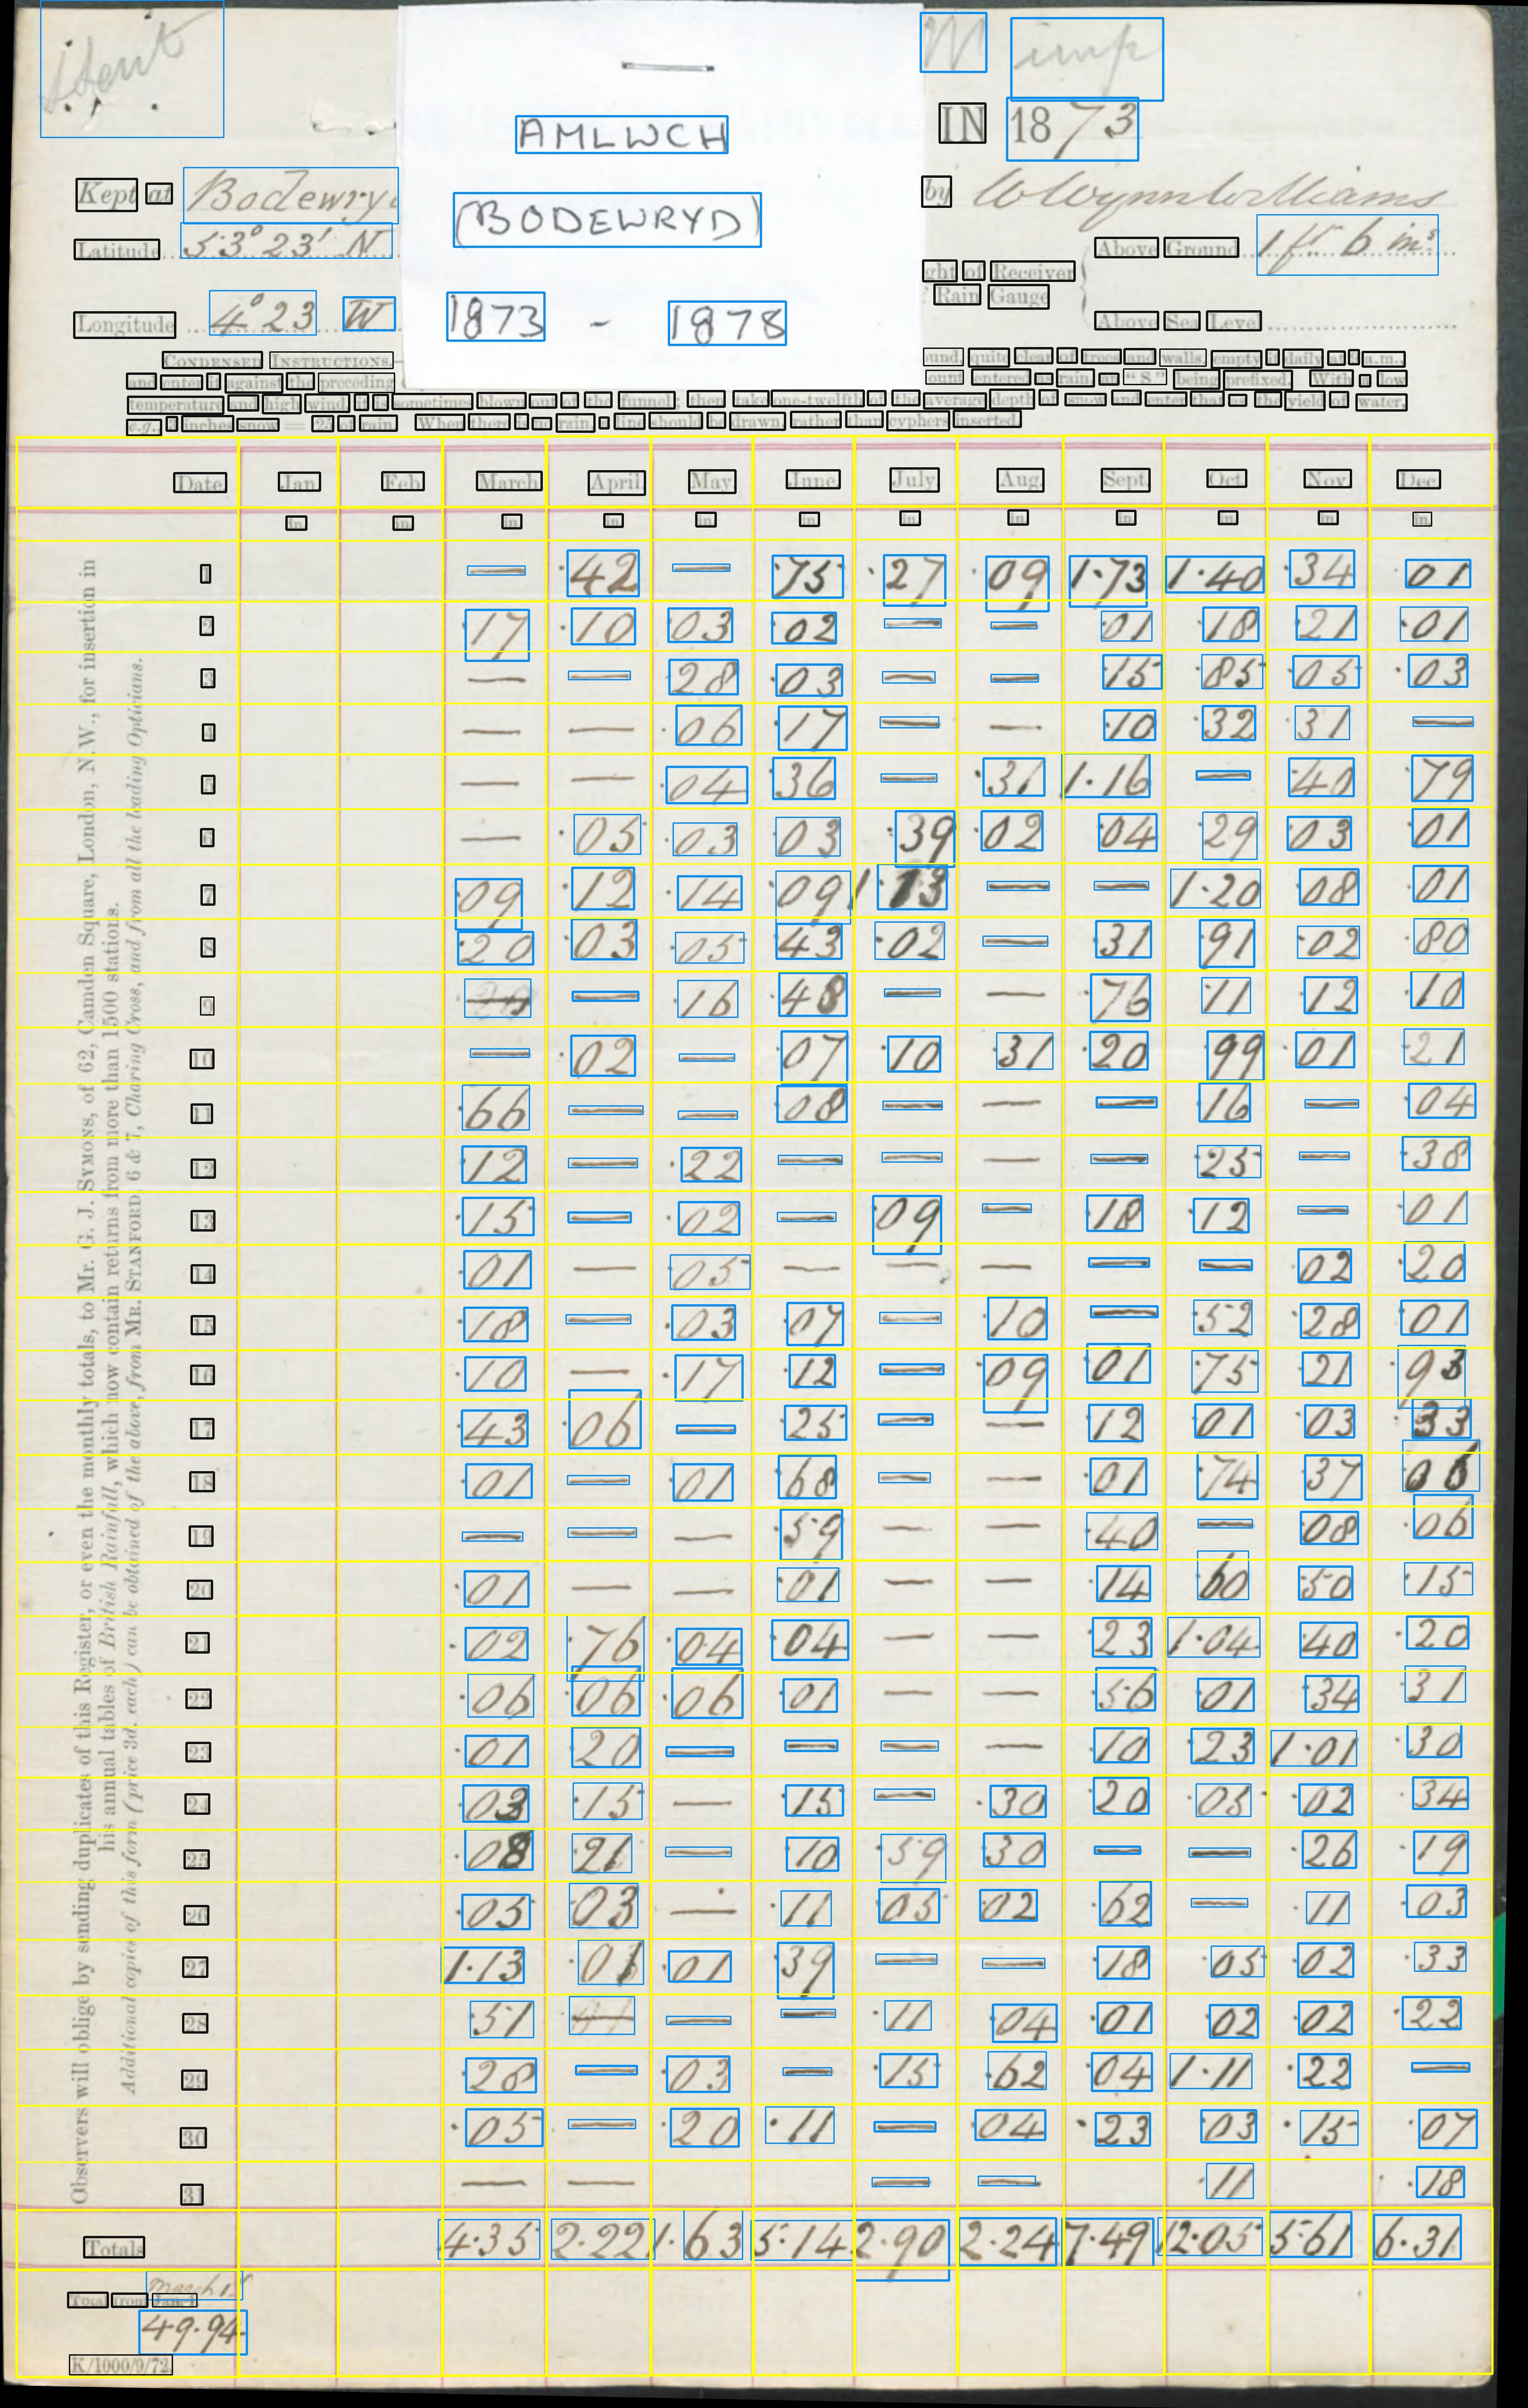 Stent
M imp
AMLWCH
IN 1873
(BODEWRYD)
1873 - 1878
Kept at Bodewry
by W Wynn Williams
Latitude 53° 23' N
Above Ground 1 ft 6 ins
ght of Receiver
Rain Gauge
Longitude 4° 23 W
Above Sea Level
CONDENSED INSTRUCTIONS.—
ound, quite clear of trees and walls, empty it daily at 9 a.m.,
and enter it against the preceding
ount entered as rain, an "S" being prefixed. With a low
temperature and high wind, it is sometimes blown out of the funnel; then take one-twelfth of the average depth of snow and enter that as the yield of water,
e.g. 3 inches snow = .25 of rain. When there is no rain, a line should be drawn, rather than cyphers inserted.
Observers will oblige by sending duplicates of this Register, or even the monthly totals, to Mr. G. J. SYMONS, of 62, Camden Square, London, N.W., for insertion in
his annual tables of British Rainfall, which now contain returns from more than 1500 stations.
Additional copies of this form (price 3d. each) can be obtained of the above, from MR. STANFORD, 6 & 7, Charing Cross, and from all the leading Opticians.
Date Jan. Feb. March April. May. June. July. Aug. Sept. Oct. Nov. Dec.
in. in. in. in. in. in. in. in. in. in. in. in.
1 — .42 — .75 .27 .09 1.73 1.40 .34 .01
2 .17 .10 .03 .02 — — .01 .18 .21 .01
3 — — .28 .03 — — .15 .85 .05 .03
4 — — .06 .17 — — .10 .32 .31 —
5 — — .04 .36 — .31 1.16 — .40 .79
6 — .05 .03 .03 .39 .02 .04 .29 .03 .01
7 .09 .12 .14 .09 1.13 — — 1.20 .08 .01
8 .20 .03 .05 .43 .02 — .31 .91 .02 .80
9 — — .16 .48 — — .76 .11 .12 .10
10 — .02 — .07 .10 .31 .20 .99 .01 .21
11 .66 — — .08 — — — .16 — .04
12 .12 — .22 — — — — .25 — .38
13 .15 — .02 — .09 — .18 .12 — .01
14 .01 — .05 — — — — — .02 .20
15 .18 — .03 .07 — .10 — .52 .28 .01
16 .10 — .17 .12 — .09 .01 .75 .21 .93
17 .43 .06 — .25 — — .12 .01 .03 .33
18 .01 — .01 .68 — — .01 .74 .37 .06
19 — — — .59 — — .40 — .08 .06
20 .01 — — .01 — — .14 .60 .50 .15
21 .02 .76 .04 .04 — — .23 1.04 .40 .20
22 .06 .06 .06 .01 — — .56 .01 .34 .31
23 .01 .20 — — — — .10 .23 1.01 .30
24 .03 .15 — .15 — .30 .20 .05 .02 .34
25 .08 .21 — .10 .59 .30 — — .26 .19
26 .05 .03 — .11 .05 .02 .62 — .11 .03
27 1.13 .01 .01 .39 — — .18 .05 .02 .33
28 .51 — — .11 .04 .01 .02 .02 .22
29 .28 — .03 — .15 .62 .04 1.11 .22 —
30 .05 — .20 .11 — .04 .23 .03 .15 .07
31 — — — — .11 .18
Totals 4.35 2.22 1.63 5.14 2.90 2.24 7.49 12.05 5.61 6.31
March 1st
Total from Jan. 1
49.94
K/1000/9/72.